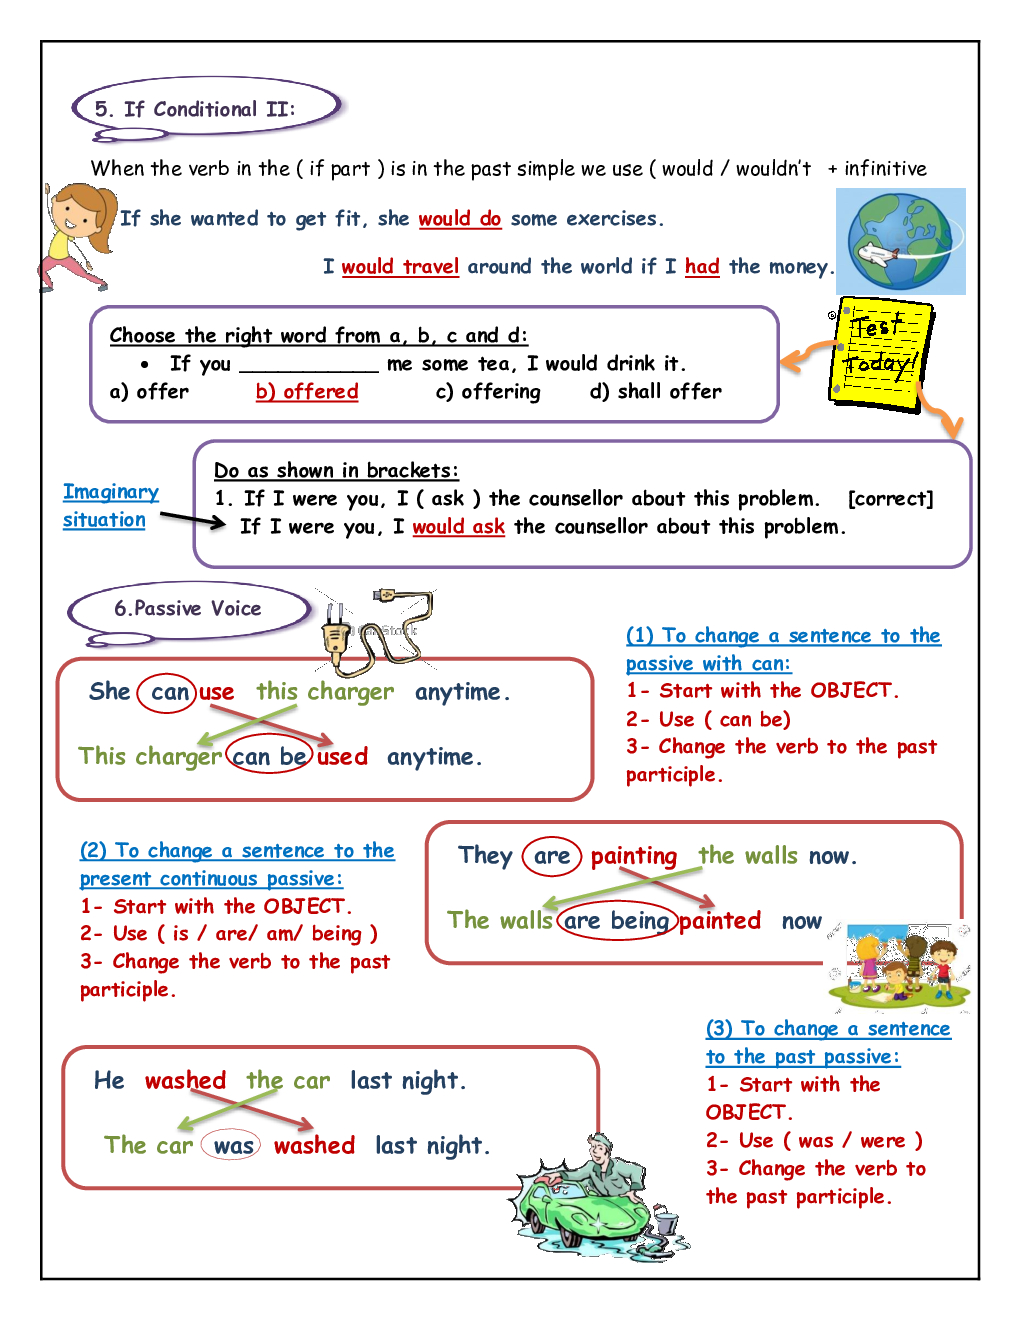 5. If Conditional II:
When the verb in the ( if part ) is in the past simple we use ( would / wouldn't + infinitive
If she wanted to get fit, she would do some exercises.
I would travel around the world if I had the money.
Test
Today!
Choose the right word from a, b, c and d:
• If you _____________ me some tea, I would drink it.
a) offer b) offered c) offering d) shall offer
Do as shown in brackets:
1. If I were you, I ( ask ) the counsellor about this problem. [correct]
If I were you, I would ask the counsellor about this problem.
Imaginary
situation
6.Passive Voice
She can use this charger anytime.
This charger can be used anytime.
(1) To change a sentence to the
passive with can:
1- Start with the OBJECT.
2- Use ( can be)
3- Change the verb to the past
participle.
(2) To change a sentence to the
present continuous passive:
1- Start with the OBJECT.
2- Use ( is / are/ am/ being )
3- Change the verb to the past
participle.
They are painting the walls now.
The walls are being painted now
He washed the car last night.
The car was washed last night.
(3) To change a sentence
to the past passive:
1- Start with the
OBJECT.
2- Use ( was / were )
3- Change the verb to
the past participle.